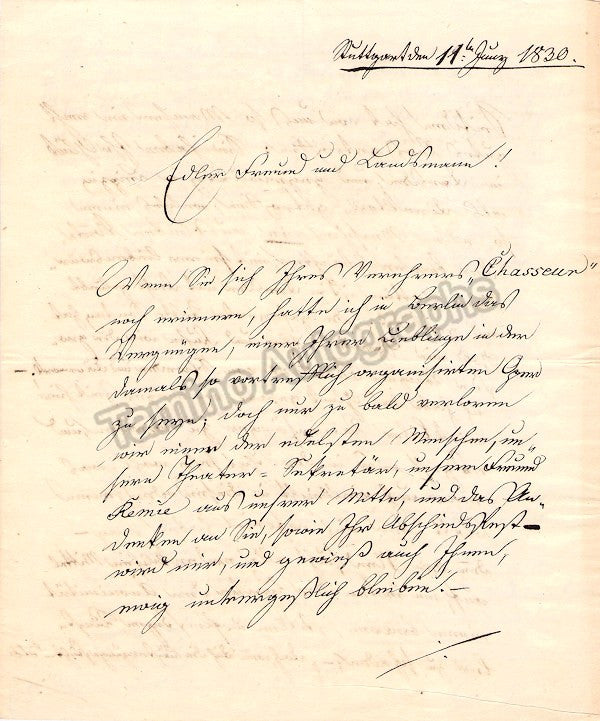 Stuttgart den 11ten Juny 1830.
Edler Freund und Landsmann!
Wenn Sie sich Ihres Verehrers „Chasseur"
noch erinnern, hatte ich in Berlin das
Vergnügen, einer Ihrer Lieblinge in der
damals so vortrefflich organisirten Oper
zu seyn; doch nur zu bald verloren
wir einen der edelsten Menschen, un-
sern Theater-Sekretär, unsern Freund
aus unsrer Mitte, und das An-
denken an Sie, sowie Ihr Abschieds-Fest
wird mir, und gewiß auch Ihnen,
ewig unvergeßlich bleiben! —
Tamino Autographs